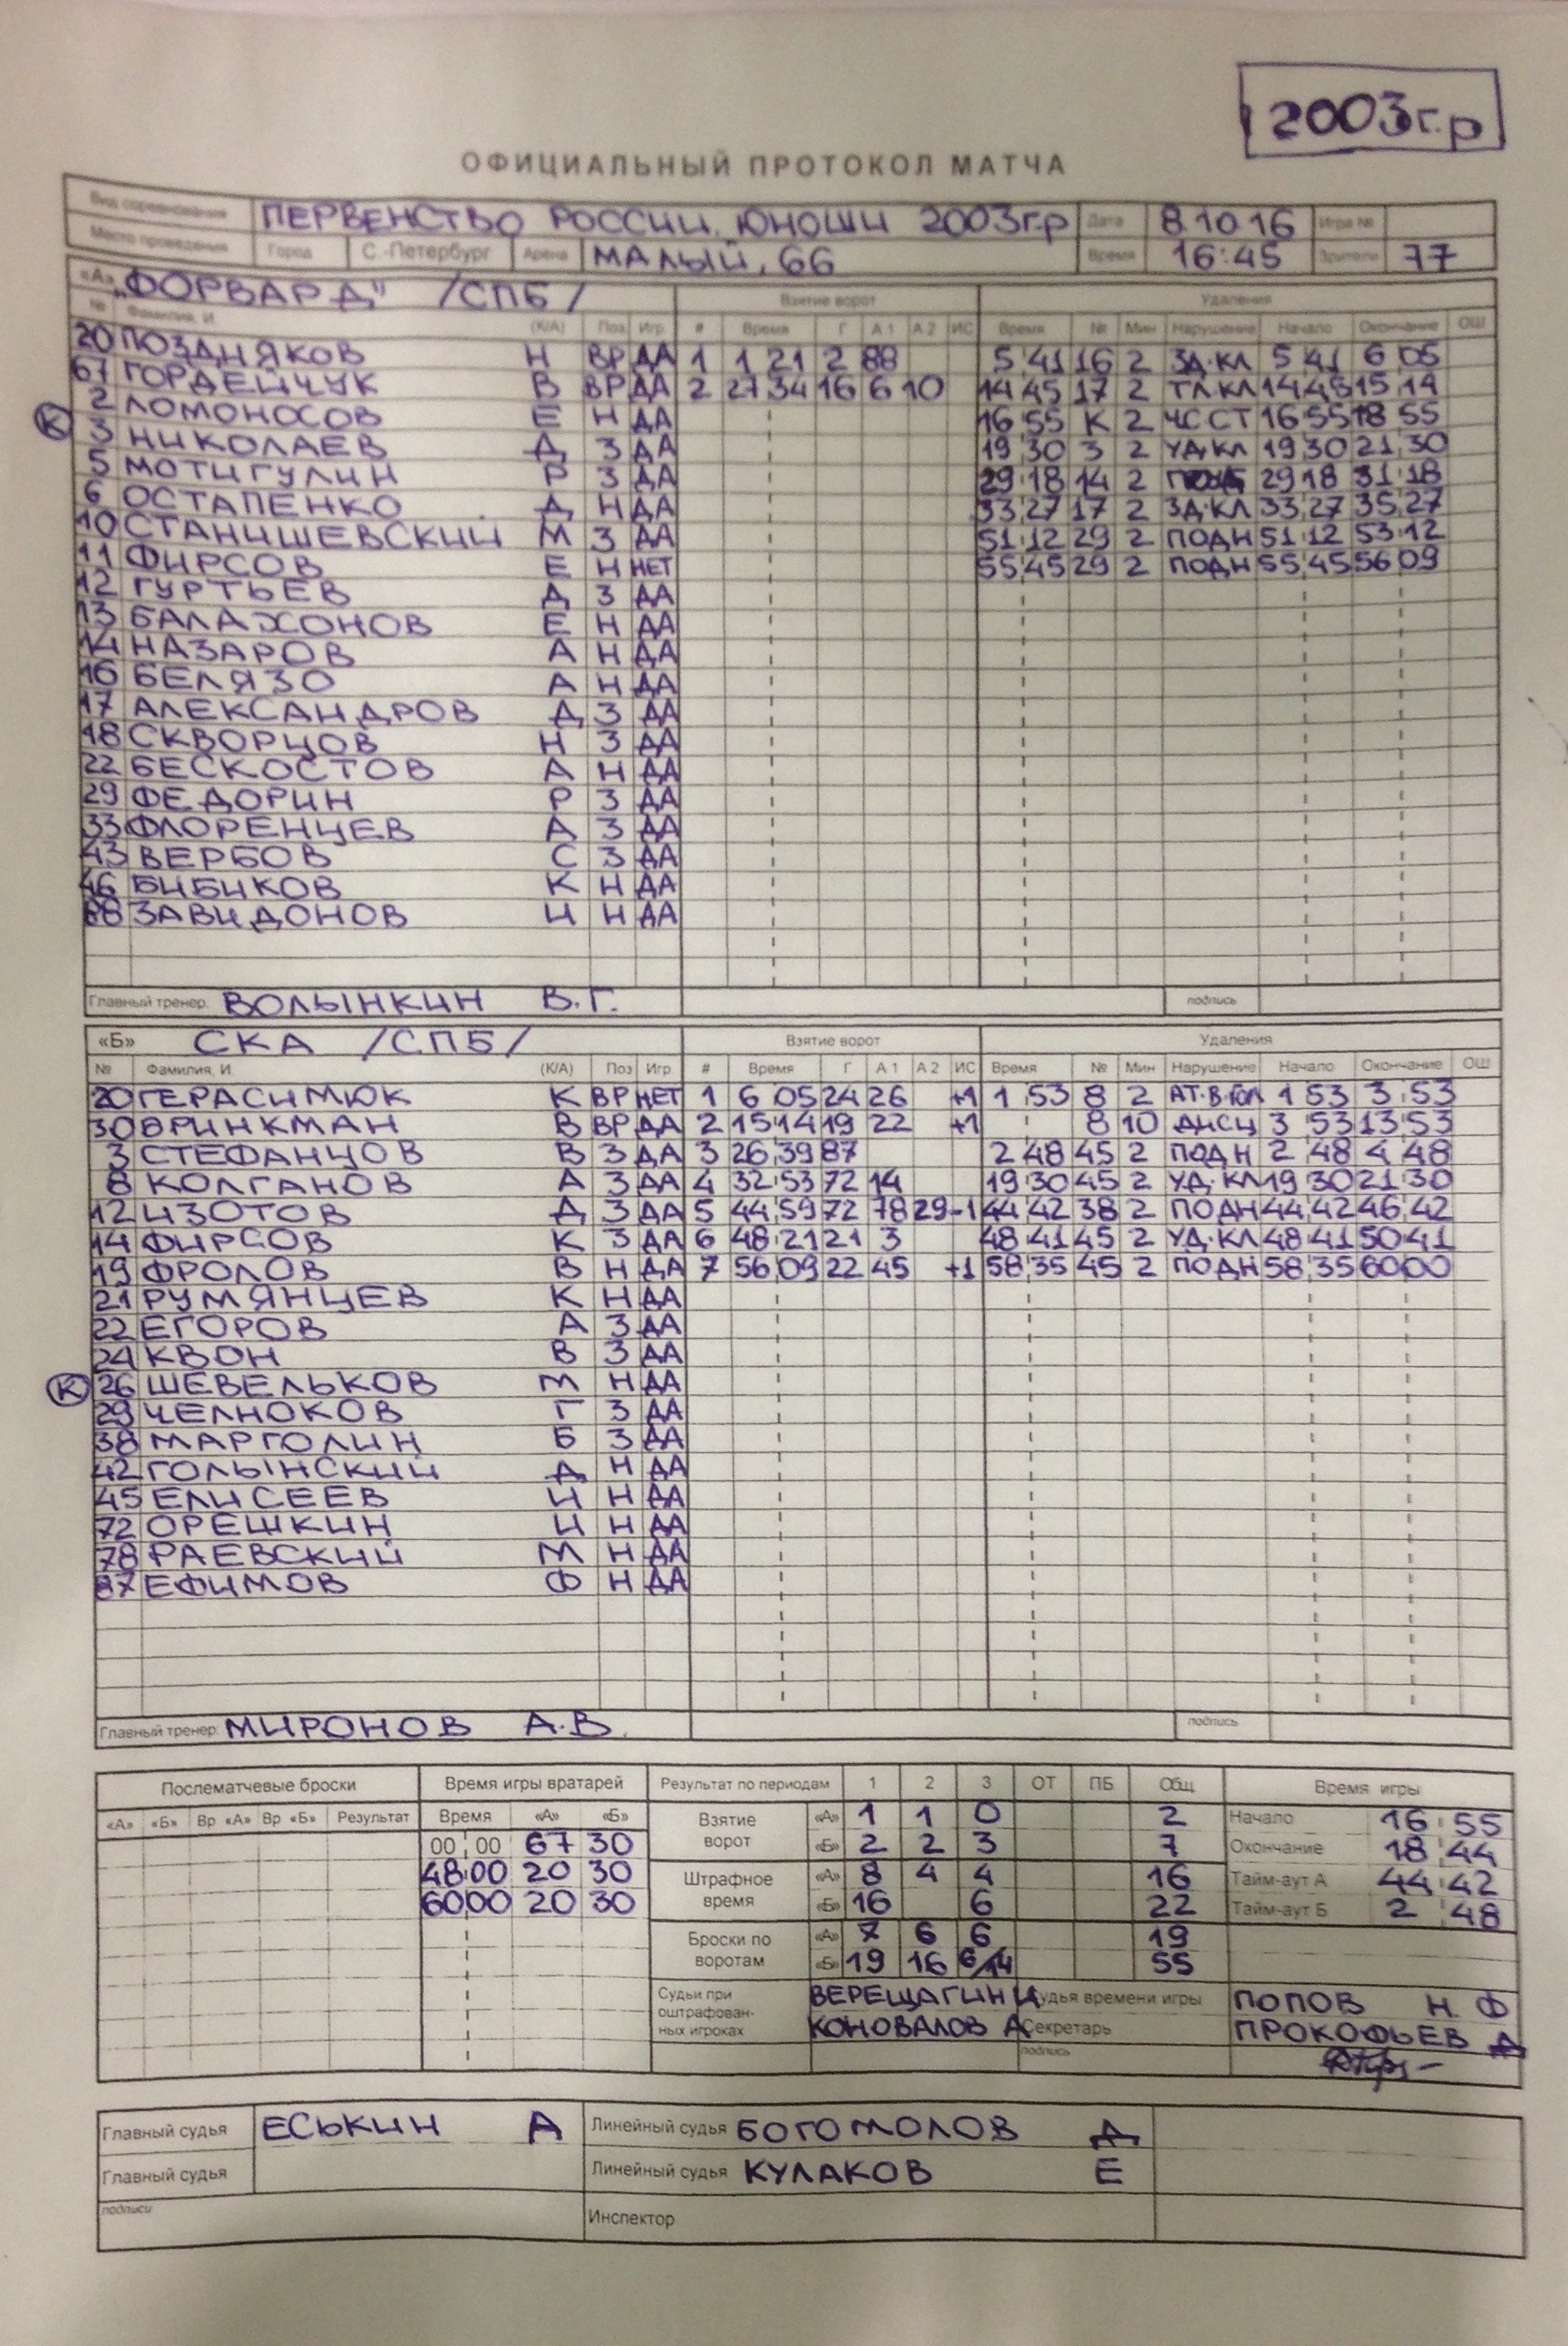 2003г.р
ОФИЦИАЛЬНЫЙ ПРОТОКОЛ МАТЧА
Вид соревнования ПЕРВЕНСТВО РОССИИ. ЮНОШИ 2003г.р Дата 8.10.16 Игра №
Место проведения Город С.-Петербург Арена МАЛЫЙ, 66 Время 16:45 Зрители 77
«А» „ФОРВАРД" /СПБ/ Взятие ворот Удаления
№ Фамилия, И. (К/А) Поз Игр # Время Г А1 А2 ИС Время № Мин Нарушение Начало Окончание ОШ
20 ПОЗДНЯКОВ Н ВР ДА 1 1 21 2 88 5 41 16 2 ЗД.КЛ 5 41 6 05
67 ГОРДЕЙЧУК В ВР ДА 2 27 34 16 6 10 14 45 17 2 ТЛ.КЛ 14 45 15 14
К 2 ЛОМОНОСОВ Е Н ДА 16 55 К 2 ЧС СТ 16 55 18 55
3 НИКОЛАЕВ Д З ДА 19 30 3 2 УД.КЛ 19 30 21 30
5 МОТИГУЛИН Р З ДА 29 18 14 2 29 18 31 18
6 ОСТАПЕНКО Д Н ДА 33 27 17 2 ЗД.КЛ 33 27 35 27
10 СТАНИШЕВСКИЙ М З ДА 51 12 29 2 ПОДН 51 12 53 12
11 ФИРСОВ Е Н НЕТ 55 45 29 2 ПОДН 55 45 56 09
12 ГУРТЬЕВ Д З ДА
13 БАЛАХОНОВ Е Н ДА
14 НАЗАРОВ А Н ДА
16 БЕЛЯЗО А Н ДА
17 АЛЕКСАНДРОВ Д З ДА
18 СКВОРЦОВ Н З ДА
22 БЕСКОСТОВ А Н ДА
29 ФЕДОРИН Р З ДА
33 ФЛОРЕНЦЕВ А З ДА
43 ВЕРБОВ С З ДА
46 БИБИКОВ К Н ДА
88 ЗАВИДОНОВ И Н ДА
Главный тренер: ВОЛЫНКИН В.Г. подпись
«Б» СКА /СПБ/ Взятие ворот Удаления
№ Фамилия, И. (К/А) Поз Игр # Время Г А1 А2 ИС Время № Мин Нарушение Начало Окончание ОШ
20 ГЕРАСИМЮК К ВР НЕТ 1 6 05 24 26 +1 1 53 8 2 АТ.В.ГОЛ 1 53 3 53
30 БРИНКМАН В ВР ДА 2 15 14 19 22 +1 8 10 ДИСЦ 3 53 13 53
3 СТЕФАНЦОВ В З ДА 3 26 39 87 2 48 45 2 ПОДН 2 48 4 48
8 КОЛГАНОВ А З ДА 4 32 53 72 14 19 30 45 2 УД.КЛ 19 30 21 30
12 ИЗОТОВ Д З ДА 5 44 59 72 78 29 -1 44 42 38 2 ПОДН 44 42 46 42
14 ФИРСОВ К З ДА 6 48 21 21 3 48 41 45 2 УД.КЛ 48 41 50 41
19 ФРОЛОВ В Н ДА 7 56 09 22 45 +1 58 35 45 2 ПОДН 58 35 60 00
21 РУМЯНЦЕВ К Н ДА
22 ЕГОРОВ А З ДА
24 КВОН В З ДА
К 26 ШЕВЕЛЬКОВ М Н ДА
29 ЧЕЛНОКОВ Г З ДА
38 МАРГОЛИН Б З ДА
42 ГОЛЫНСКИЙ Д Н ДА
45 ЕЛИСЕЕВ И Н ДА
72 ОРЕШКИН И Н ДА
78 РАЕВСКИЙ М Н ДА
87 ЕФИМОВ Ф Н ДА
Главный тренер: МИРОНОВ А.В. подпись
Послематчевые броски Время игры вратарей Результат по периодам 1 2 3 ОТ ПБ Общ Время игры
«А» «Б» Вр «А» Вр «Б» Результат Время «А» «Б» Взятие ворот «А» 1 1 0 2 Начало 16 55
00 00 67 30 «Б» 2 2 3 7 Окончание 18 44
48 00 20 30 Штрафное время «А» 8 4 4 16 Тайм-аут А 44 42
60 00 20 30 «Б» 16 6 22 Тайм-аут Б 2 48
Броски по воротам «А» 7 6 6 19
«Б» 19 16 6/14 55
Судьи при оштрафованных игроках ВЕРЕЩАГИН И Судья времени игры ПОПОВ Н Ф
КОНОВАЛОВ А Секретарь ПРОКОФЬЕВ Д
подпись
Главный судья ЕСЬКИН А Линейный судья БОГОМОЛОВ Д
Главный судья Линейный судья КУЛАКОВ Е
подписи Инспектор